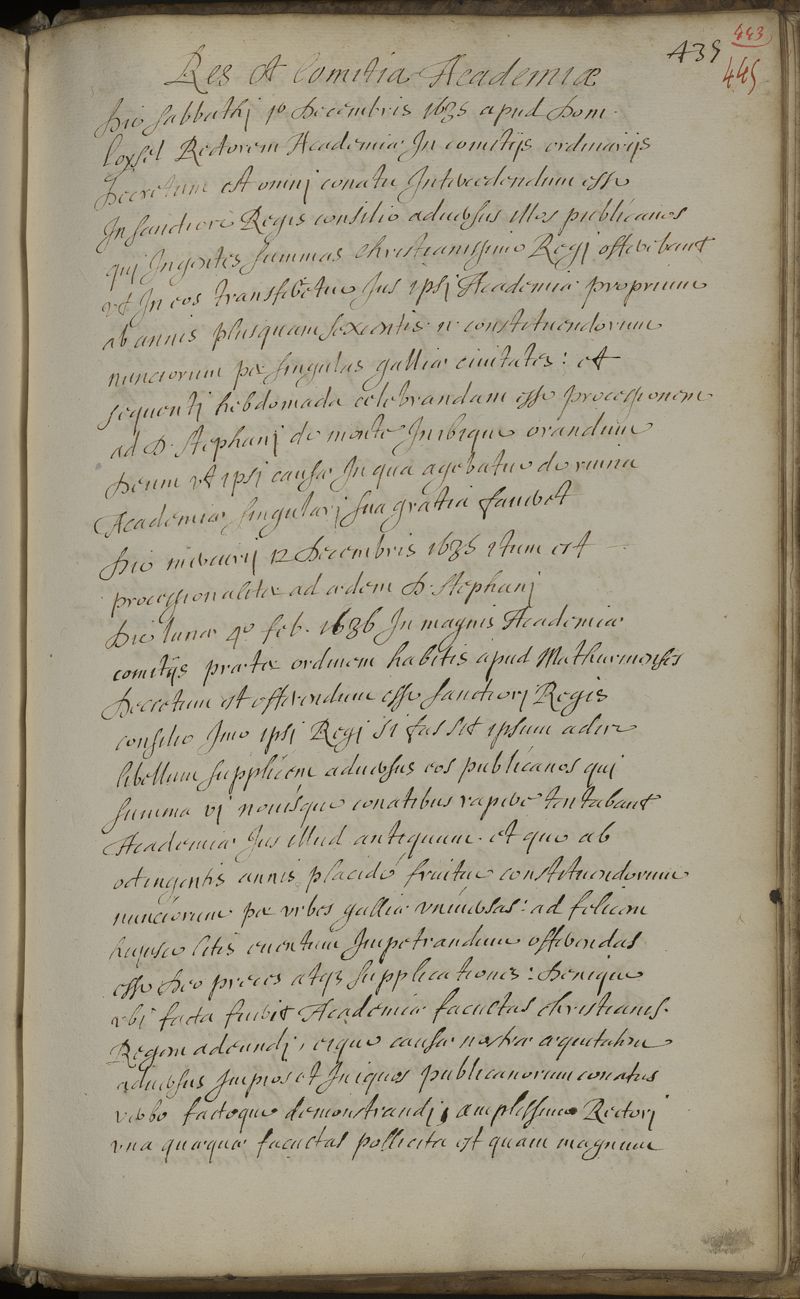 443
439
445
Res et Comitia Academiæ
Die sabbathj 1º Decembris 1635 apud Dom.
Loysel Rectorem Academiæ In comitijs ordinarijs
Decretum est omnj conatu Intercedendum esse
In sanctiore Regis consilio aduersus illos publicanos
quj Ingentes summas christianissimo Regj offerebant
vt In eos transferretur Jus ipsj Academiæ proprium
ab annis plusquam sexcentis constituendorum
nunciorum per singulas galliæ ciuitates: et
sequentj hebdomada celebrandam esse processionem
ad D. Stephanj de monte Inibique orandum
Deum vt ipsj causæ In qua agebatur de ruina
Academiæ singularj sua gratia faueret
Die mercurij 12 Decembris 1635 itum est
processionaliter ad ædem D. Stephanj
Die lunæ 4º feb. 1636 In magnis Academiæ
comitijs præter ordinem habitis apud Mathurinenses
Decretum est offerendum esse sanctiorj Regis
consilio Imo ipsj Regj si fas sit ipsum adire
libellum supplicem aduersus eos publicanos quj
summa vj nouisque conatibus rapere tentabant
Academiæ Jus illud antiquum et quo ab
octingentis annis placidè fruitur constituendorum
nunciorum per vrbes galliæ vniuersas: ad felicem
hujusce litis euentum Impetrandum offerendas
esse Deo preces atq3 supplicationes: Denique
vbj facta fuerit Academiæ facultas christianis.
Regem adeundj, eique causæ nostræ æquitatem
aduersus Impios et Iniquos publicanorum conatus
verbo factoque demonstrandj, amplissimo Rectorj
vna quæquæ facultas pollicita est quam magnum